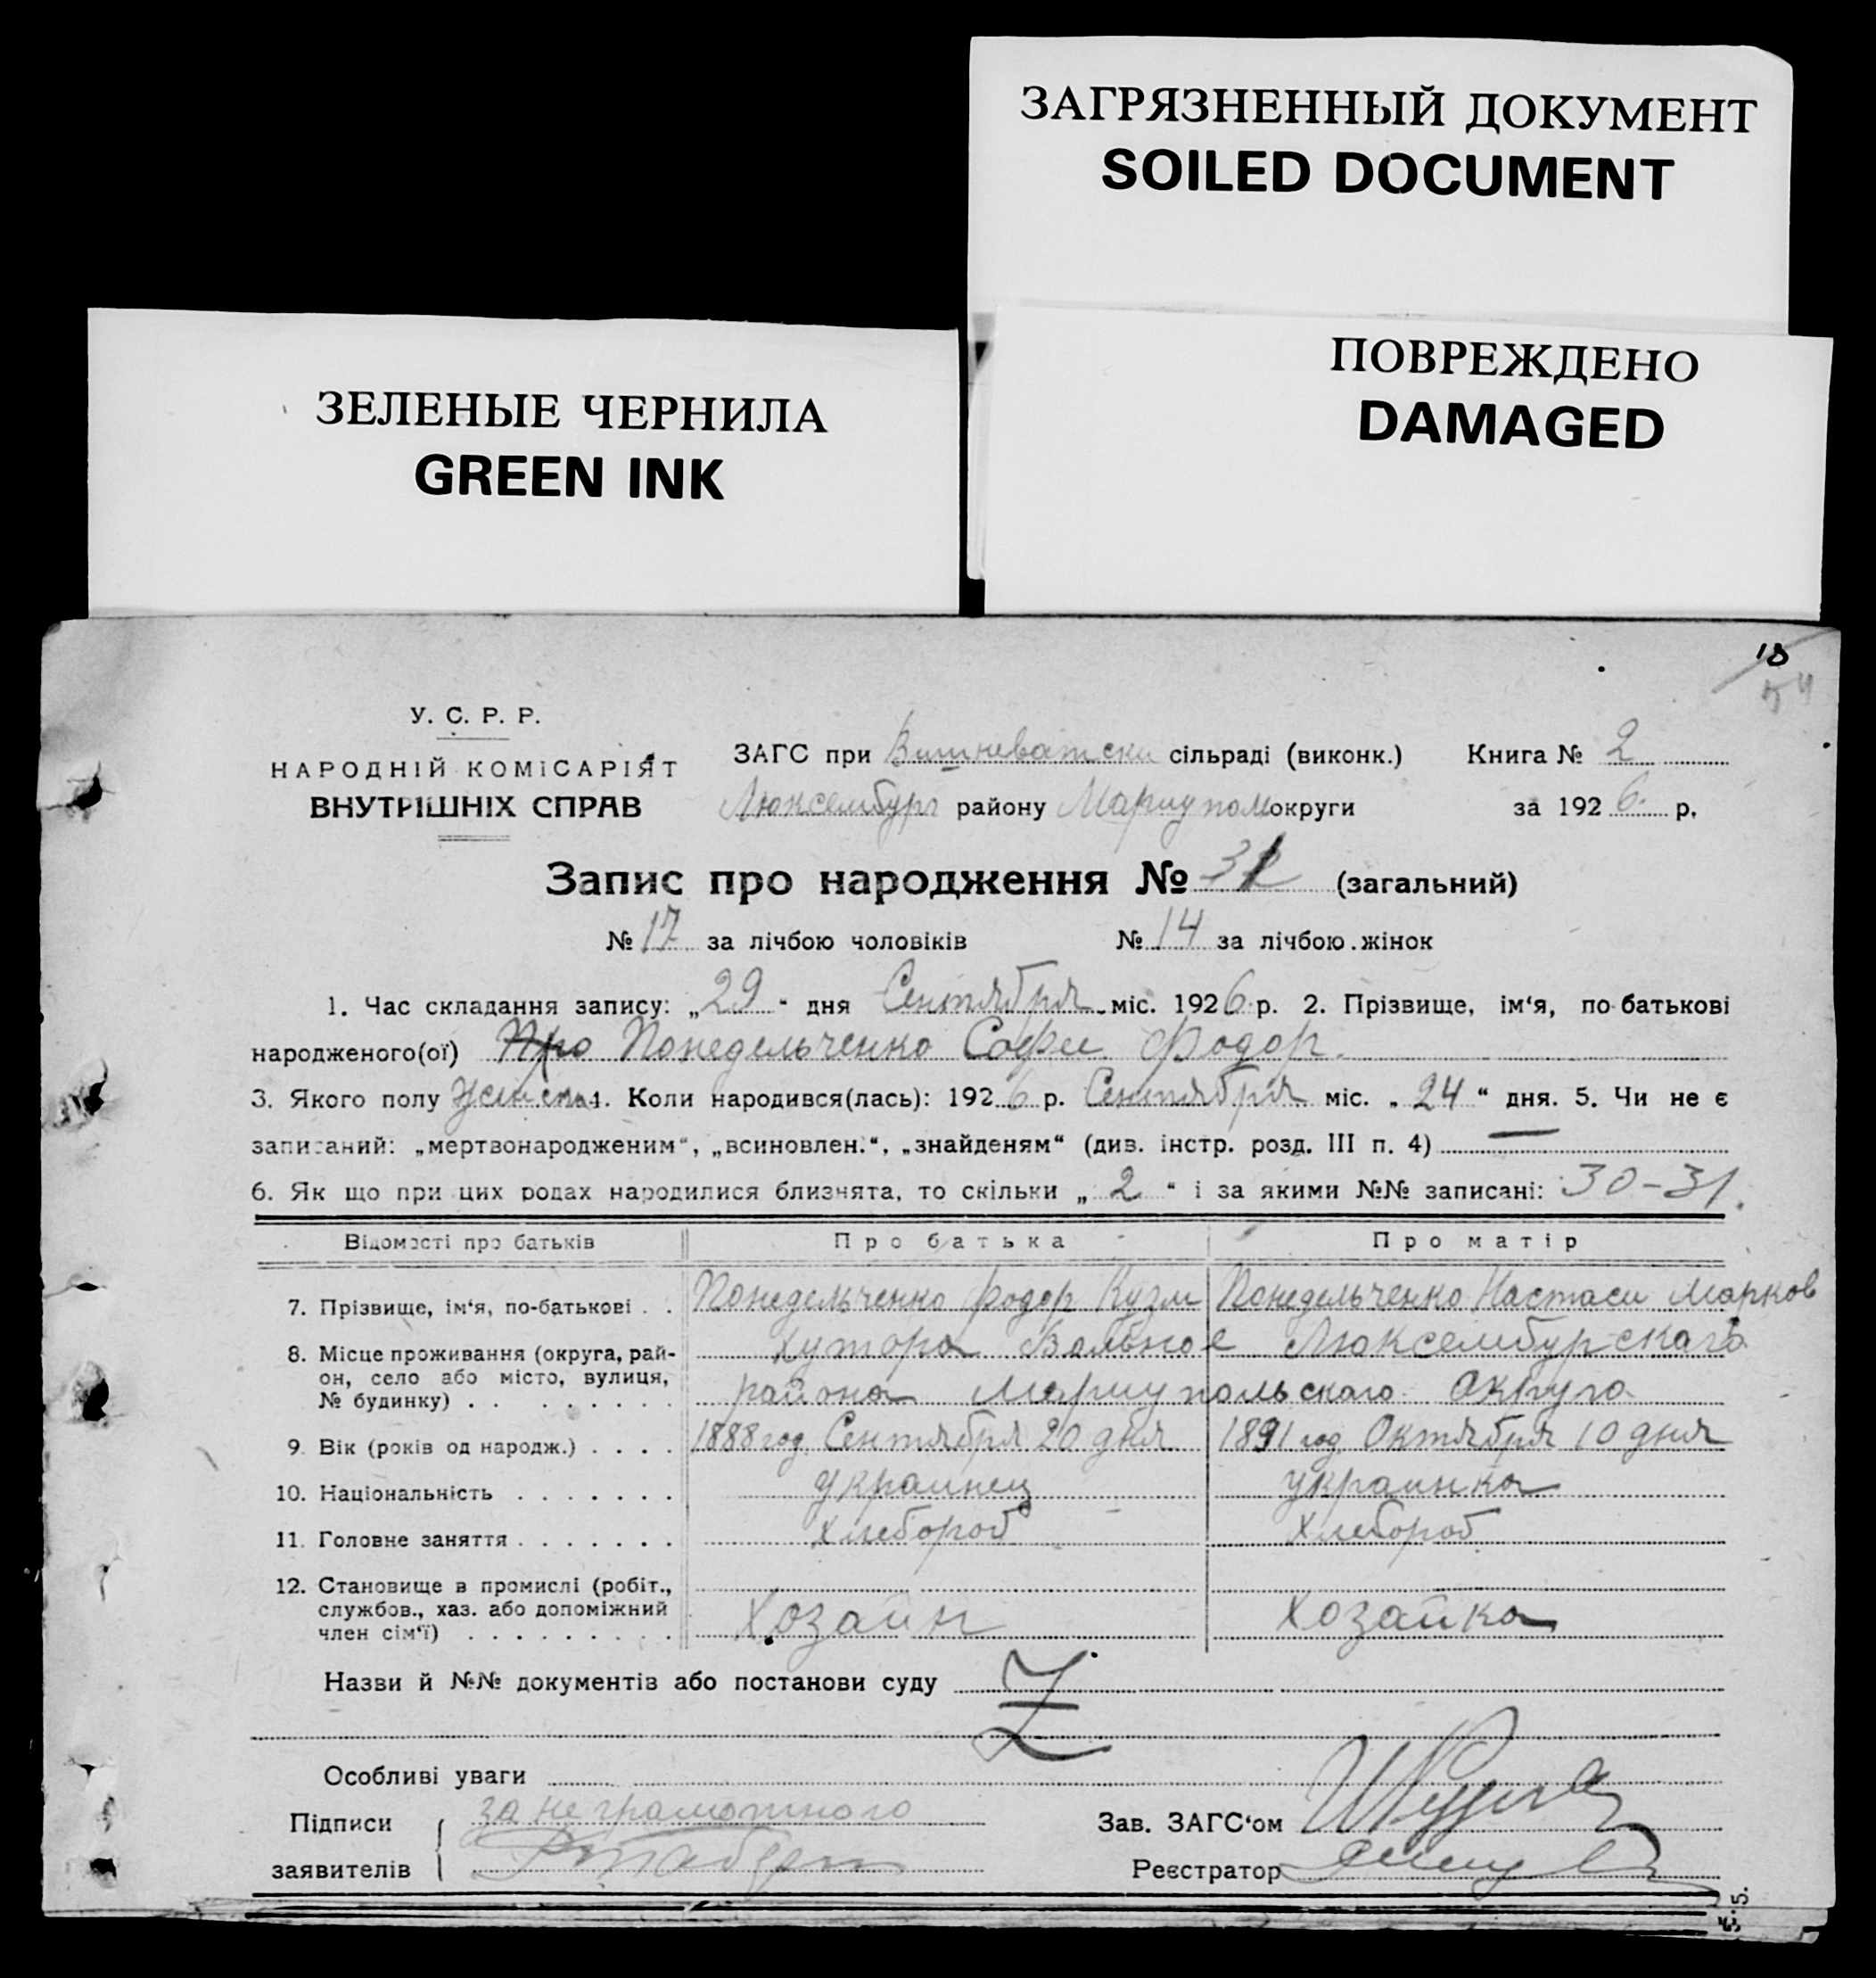 ЗАГРЯЗНЕННЫЙ ДОКУМЕНТ
SOILED DOCUMENT
ПОВРЕЖДЕНО
DAMAGED
ЗЕЛЕНЫЕ ЧЕРНИЛА
GREEN INK
18
У. С. Р. Р.
НАРОДНІЙ КОМІСАРІЯТ
ВНУТРІШНІХ СПРАВ
ЗАГС при Вишневатски сільраді (виконк.) Книга № 2
Люксембург району Мариупол округи за 1926 р.
Запис про народження № 31 (загальний)
№ 17 за лічбою чоловіків № 14 за лічбою жінок
1. Час складання запису: „29“ дня Сентября міс. 1926 р. 2. Прізвище, ім‘я, по батькові
народженого(ої) Понедельченко Софи Фодор.
3. Якого полу Женска 4. Коли народився(лась): 1926 р. Сентября міс. „24“ дня. 5. Чи не є
записаний: „мертвонародженим“, „всиновлен.“, „знайденям“ (див. інстр. розд. III п. 4) —
6. Як що при цих родах народилися близнята, то скільки „2“ і за якими №№ записані: 30-31.
Відомості про батьків Про батька Про матір
7. Прізвище, ім‘я, по-батькові . . Понедельченко Фодор Кузм Понедельченко Настаси Марков
8. Місце проживання (округа, рай-
он, село або місто, вулиця,
№ будинку) . . . . . . . . .
хутора Вольное Люксембурскаго
района Мариупольскаго Округа
9. Вік (років од народж.) . . . . 1888 год Сентября 20 дня 1891 год Октября 10 дня
10. Національність . . . . . . . украинец украинка
11. Головне заняття . . . . . . . хлебороб хлебороб
12. Становище в промислі (робіт.,
службов., хаз. або допоміжний
член сім‘ї) . . . . . . . . .
Хозаин Хозайка
Назви й №№ документів або постанови суду
Особливі уваги
Підписи за неграмотного
заявителів
Зав. ЗАГС‘ом
Реєстратор